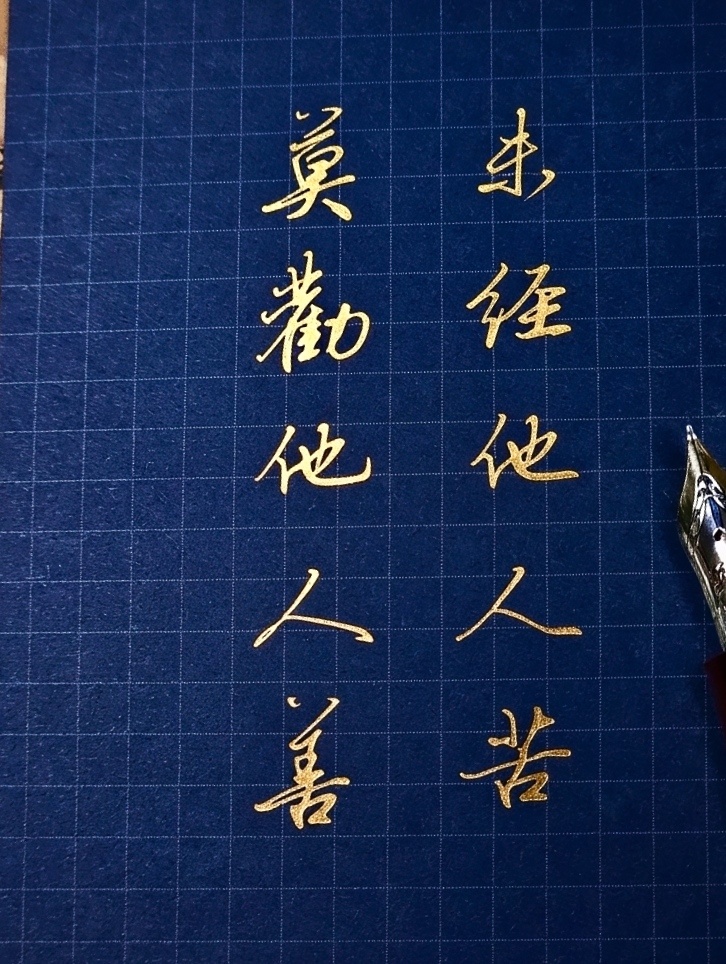 未经他人苦
莫勸他人善